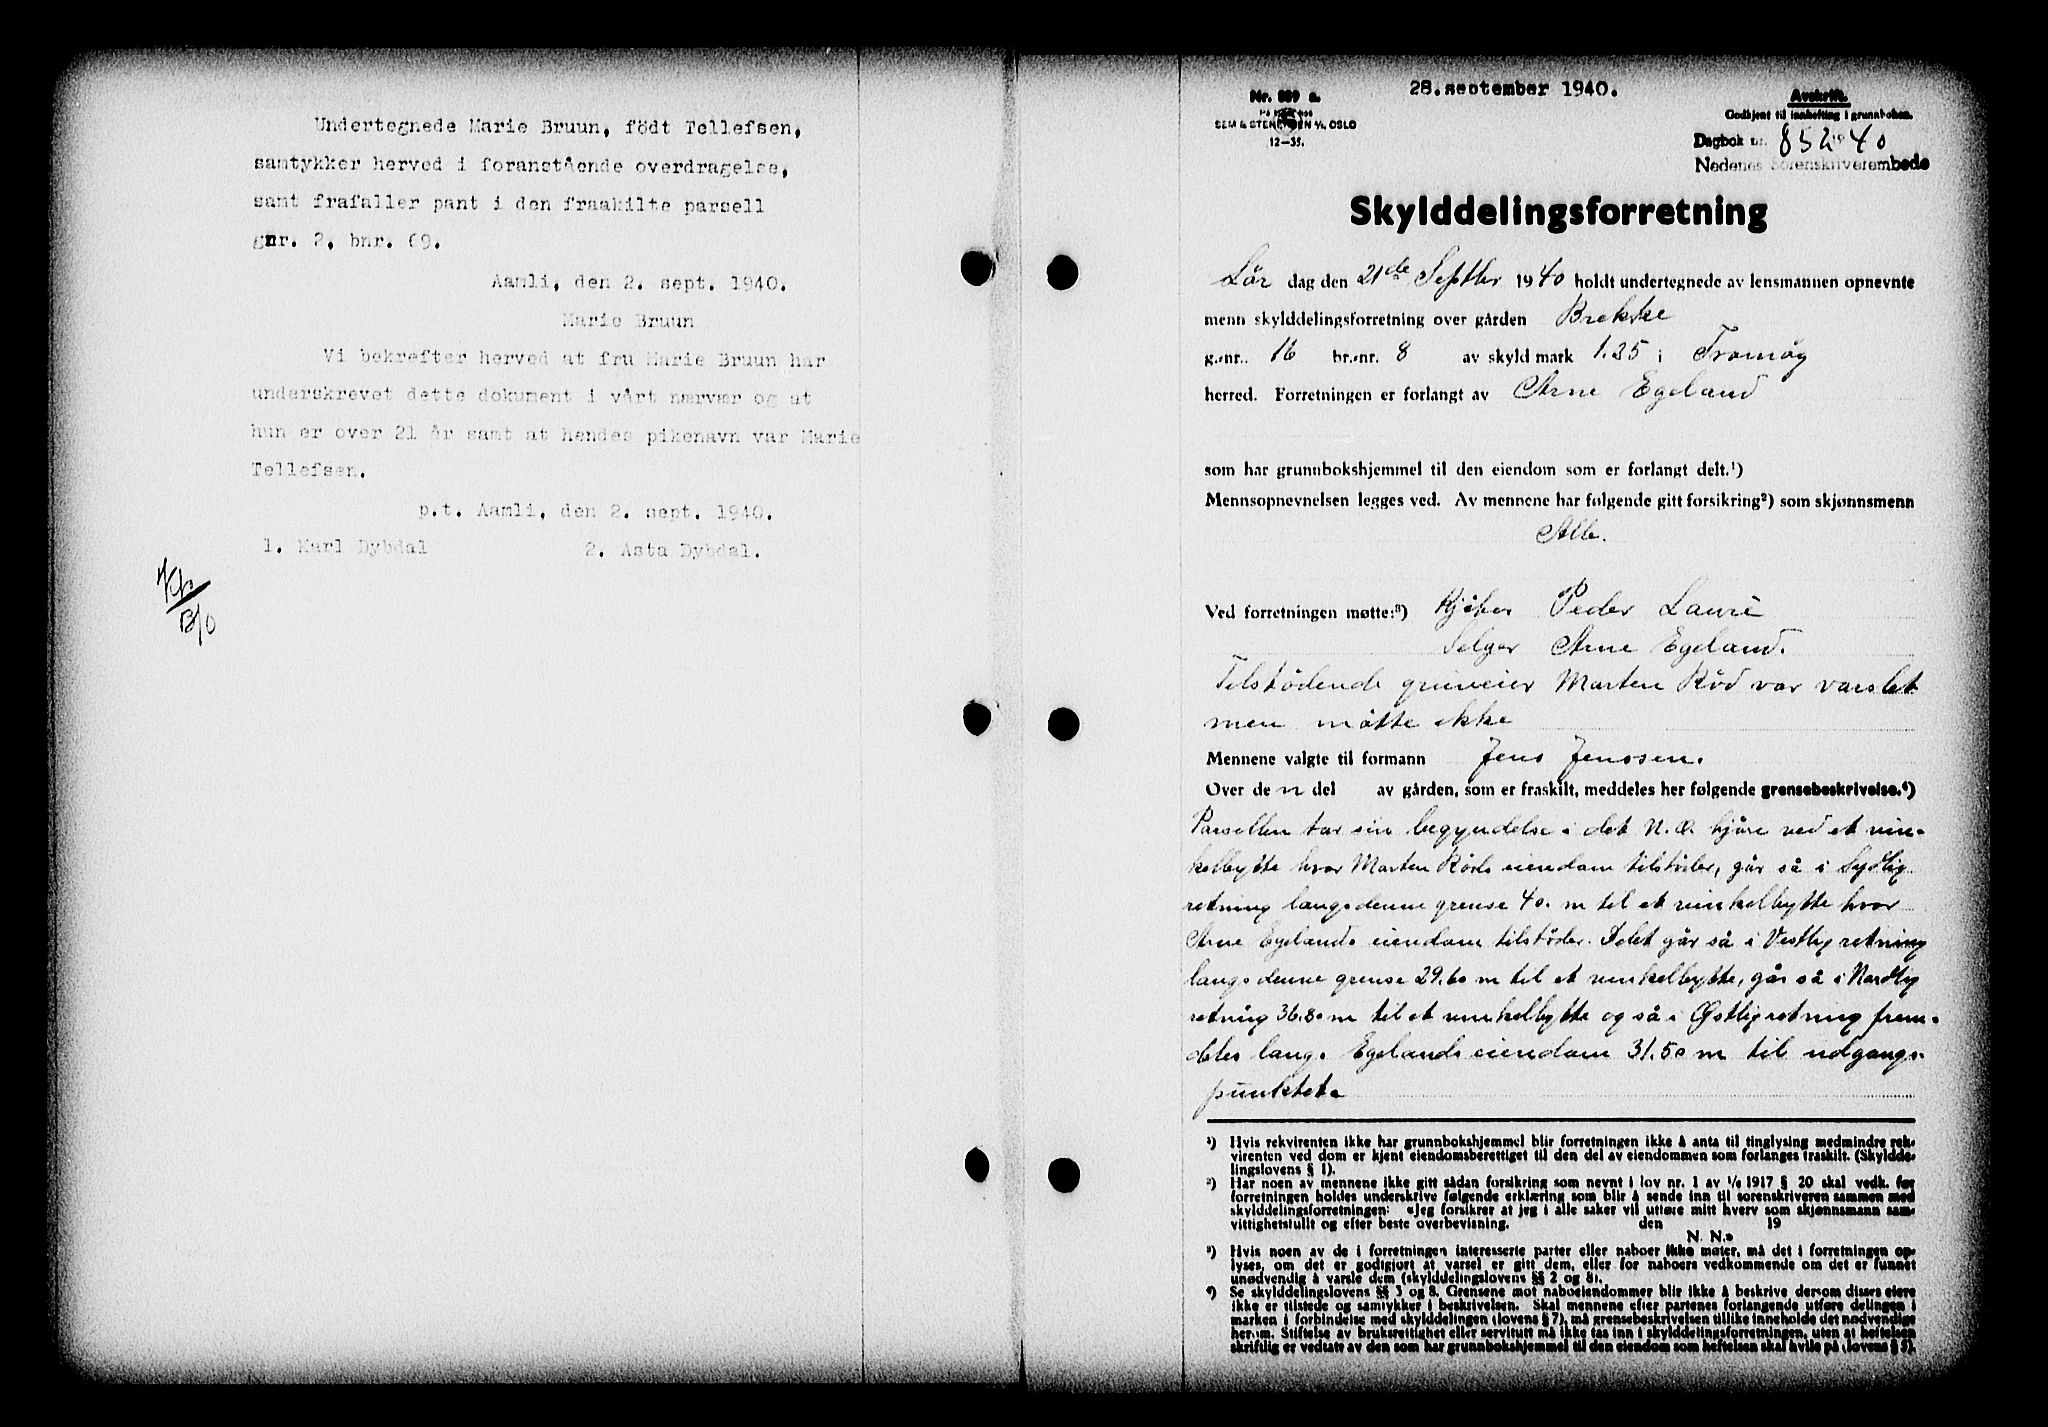 Undertegnede Marie Bruun, födt Tellefsen,
samtykker herved i foranstående overdragelse,
samt frafaller pant i den fraskilte parsell
gnr. 2, bnr. 69.
Aamli, den 2. sept. 1940.
Marie Bruun
Vi bekrefter herved at fru Marie Bruun har
underskrevet dette dokument i vårt nærvær og at
hun er over 21 år samt at hendes pikenavn var Marie
Tellefsen.
p.t. Aamli, den 2. sept. 1940.
1. Karl Dybdal 2. Asta Dybdal.
28. september 1940.
Nr. 889 a.
SEM & STENERSEN A/S, OSLO
12—35.
Avskrift.
Godkjent til innhefting i grunnboken.
Dagbok nr. 852 1940
Nedenes Sorenskriverembede
Skylddelingsforretning
Lör dag den 21de Septbr 1940 holdt undertegnede av lensmannen opnevnte
menn skylddelingsforretning over gården Brekke
g.-nr. 16 br.-nr. 8 av skyld mark 1.35 i Tromøy
herred. Forretningen er forlangt av Arne Egeland
som har grunnbokshjemmel til den eiendom som er forlangt delt.¹)
Mennsopnevnelsen legges ved. Av mennene har følgende gitt forsikring²) som skjønnsmenn
Alle.
Ved forretningen møtte:³) Kjöber Peder Lauré
Selger Arne Egeland.
Tilstödende grunneier Marten Röd var varslet
men mötte ikke
Mennene valgte til formann Jens Jenssen.
Over de n del av gården, som er fraskilt, meddeles her følgende grensebeskrivelse.⁴)
Parsellen tar sin begyndelse i det N.Ø. hjöre ved et vin-
kelbytte hvor Marten Röds eiendom tilstöder, går så i Sydlig
retning langs denne grense 40. m til et vinkelbytte hvor
Arne Egelands eiendom tilstöder. Delet går så i Vestlig retning
langs denne grense 29.60 m til et vinkelbytte, går så i Nordlig
retning 36.80 m til et vinkelbytte og så i Østlig retning frem-
deles langs Egelands eiendom 31.50 m til udgangs-
punktet.
¹) Hvis rekvirenten ikke har grunnbokshjemmel blir forretningen ikke å anta til tinglysing medmindre rek-
virenten ved dom er kjent eiendomsberettiget til den del av eiendommen som forlanges fraskilt. (Skyldde-
lingslovens § 1).
²) Har noen av mennene ikke gitt sådan forsikring som nevnt i lov nr. 1 av 1/6 1917 § 20 skal vedk. før
forretningen holdes underskrive følgende erklæring som blir å sende inn til sorenskriveren sammen med
skylddelingsforretningen: «Jeg forsikrer at jeg i alle saker vil utføre mitt hverv som skjønnsmann sam-
vittighetsfullt og efter beste overbevisning. den 19
N. N.»
³) Hvis noen av de i forretningen interesserte parter eller naboer ikke møter, må det i forretningen op-
lyses, om det er godtgjort at varsel er gitt dem, eller for naboers vedkommende om det er funnet
unødvendig å varsle dem (skylddelingslovens §§ 2 og 8).
⁴) Se skylddelingslovens §§ 3 og 8. Grensene mot naboeiendommer blir ikke å beskrive dersom disses eiere
ikke er tilstede og samtykker i beskrivelsen. Skal mennene efter partenes forlangende utføre delingen i
marken i forbindelse med skylddelingen (lovens § 7), må grensebeskrivelsen tillike inneholde det nødvendige
herom. Stiftelse av bruksrettighet eller servitutt må ikke tas inn i skylddelingsforretningen, uten at heftelsen
skriftlig er vedtatt av den som har grunnbokshjemmel til den eiendom som heftelsen skal hvile på (lovens § 5).